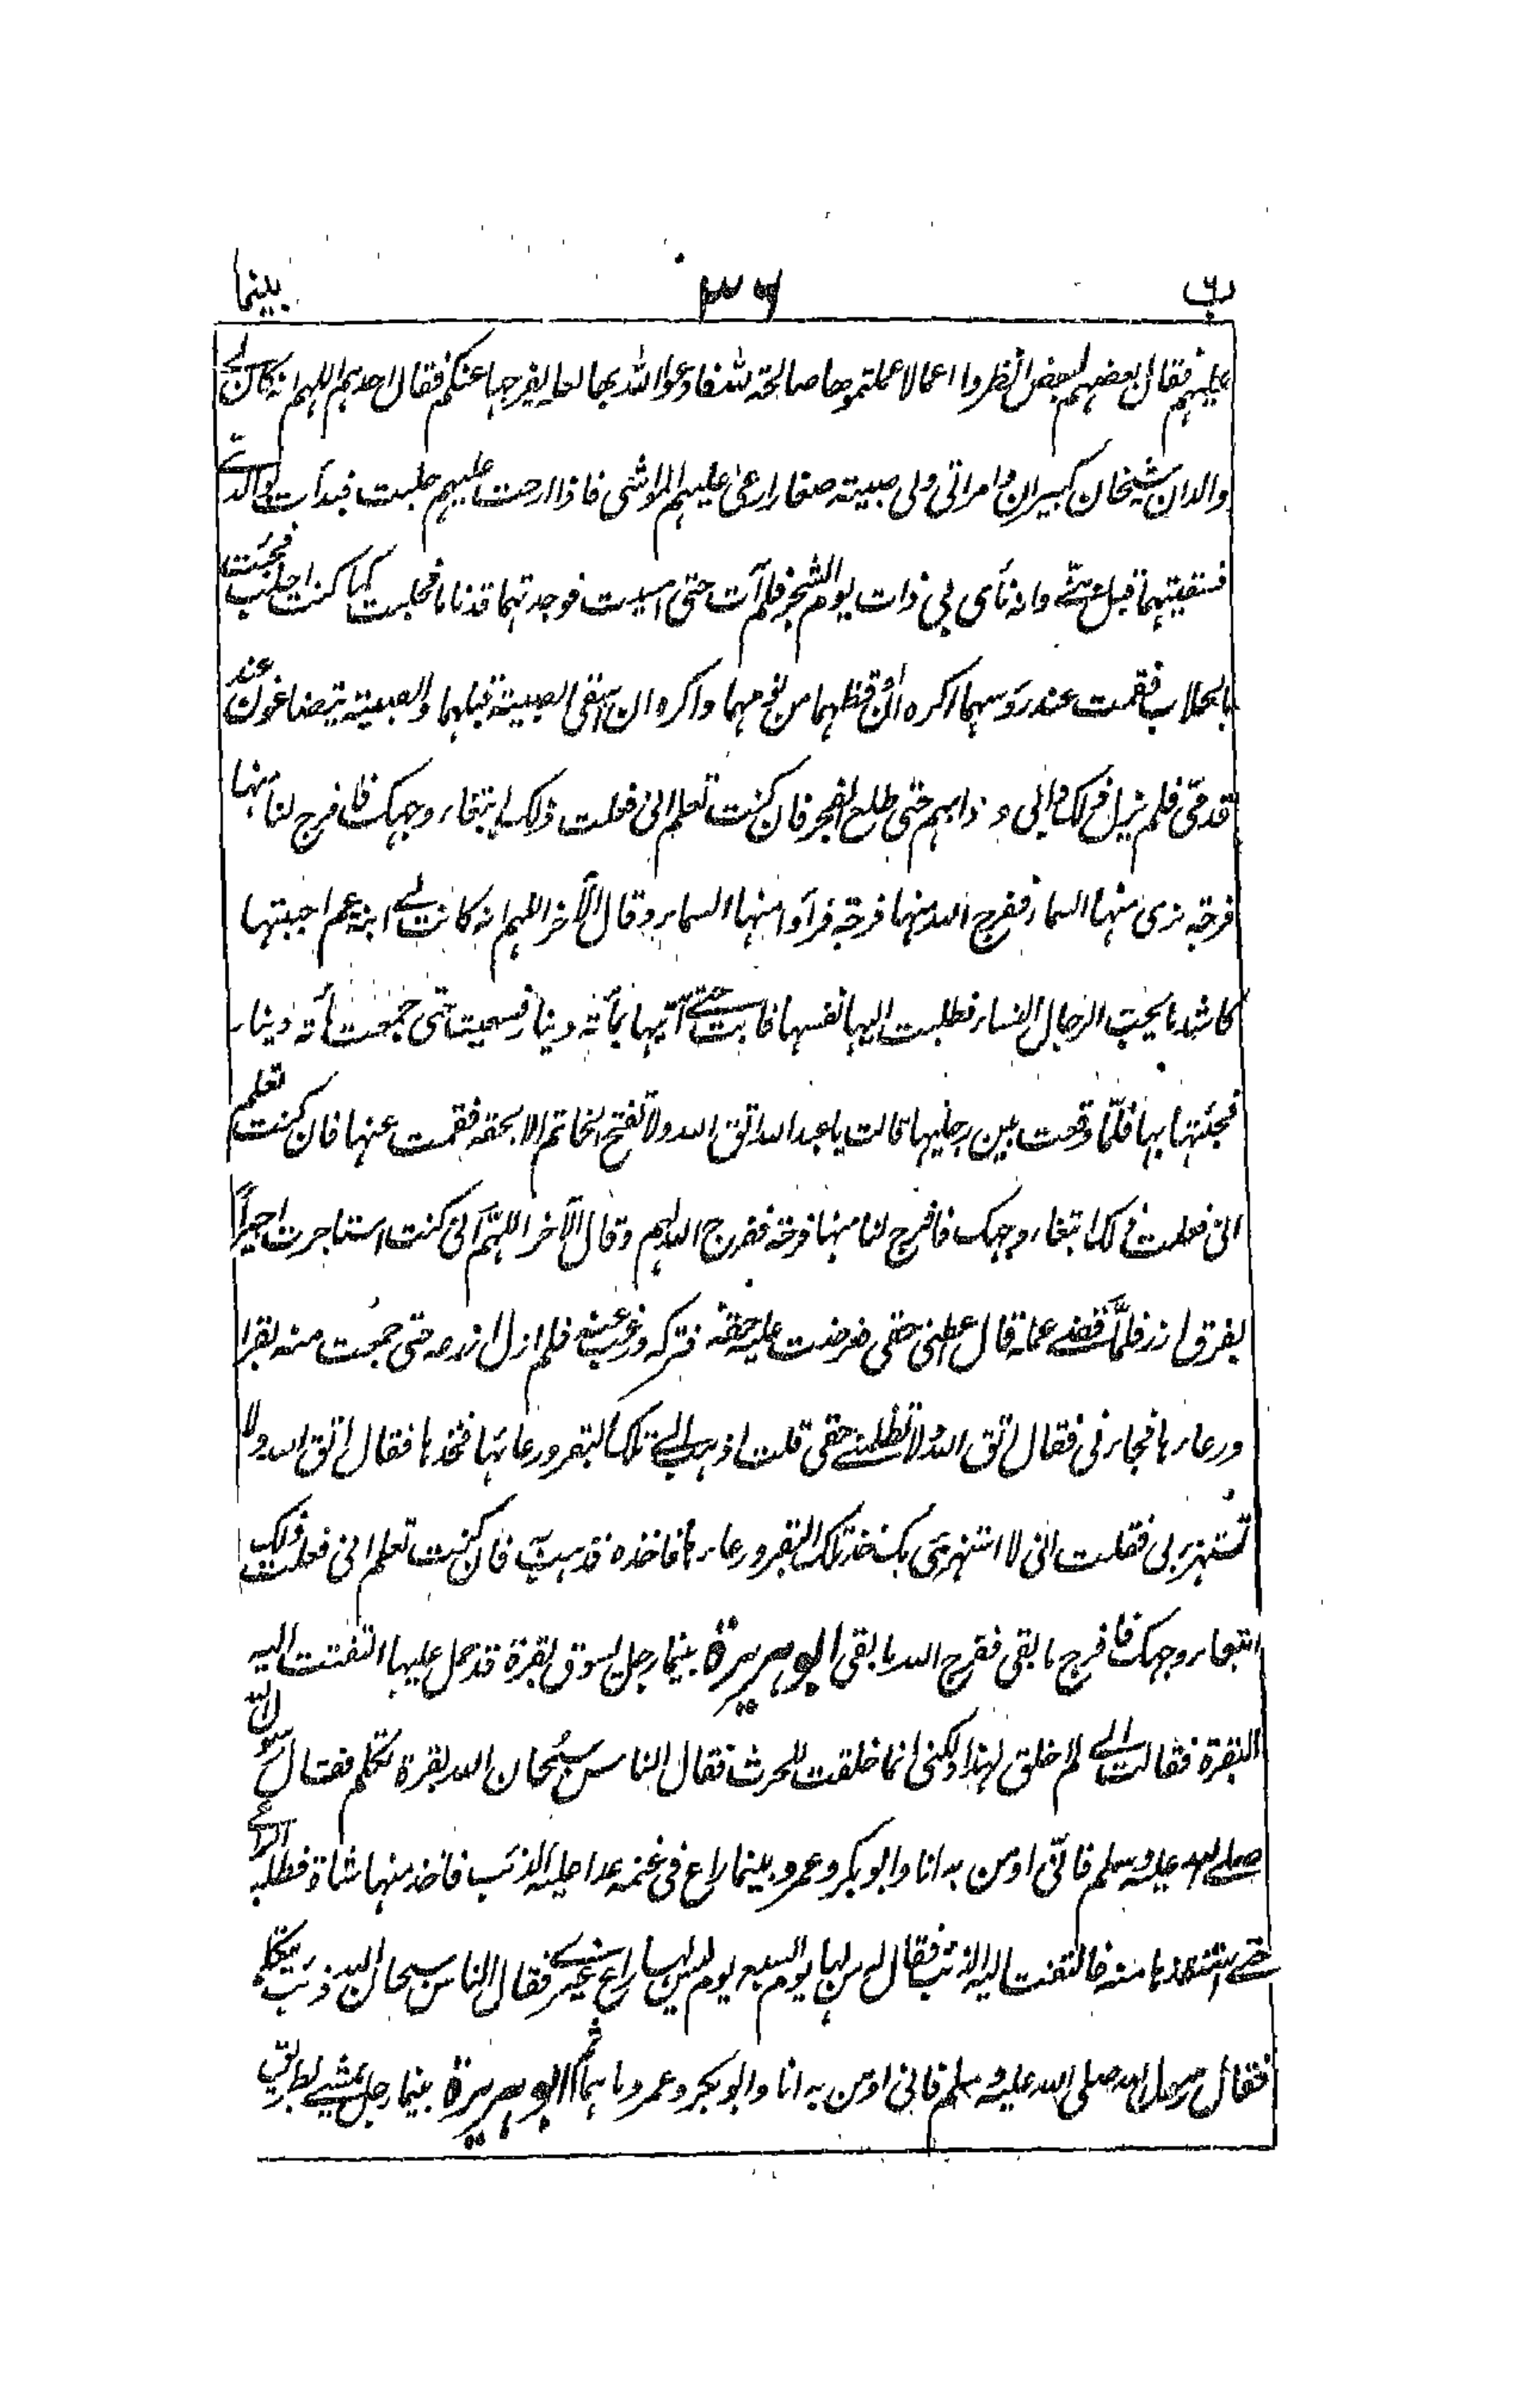 ب ٣٦ بينما
عليهم فقال بعضهم لبعض انظروا اعمالا عملتموها صالحة لله فادعوا الله بها لعله يفرجها عنكم فقال احدهم اللهم انه كان لى
والدان شيخان كبيران وامراتى ولى صبية صغار ارعى عليهم المواشى فاذا ارحت عليهم حلبت فبدأت بوالدى
فسقيتهما قبل بنى وانه نأى بى ذات يوم الشجر فلم آت حتى امسيت فوجدتهما قد ناما فحلبت كما كنت احلب فجئت
بالحلاب فقمت عند رؤسهما اكره ان اوقظهما من نومهما واكره ان اسقى الصبية قبلهما والصبية يتضاغون عند
قدمى فلم يزل ذلك دابى ودابهم حتى طلع الفجر فان كنت تعلم انى فعلت ذلك ابتغاء وجهك فافرج لنا منها
فرجة نرى منها السماء ففرج الله منها فرجة فرأوا منها السماء وقال الآخر اللهم انه كانت لى ابنة عم احببتها
كاشد ما يحب الرجال النساء فطلبت اليها نفسها فابت حتى آتيها بمأته دينار فسعيت حتى جمعت مأته دينار
فجئتها بها فلمّا وقعت بين رجليها قالت يا عبد الله اتق الله ولا تفتح الخاتم الا بحقه فقمت عنها فان كنت تعلم
انى فعلت ذلك ابتغاء وجهك فافرج لنا منها فرجة ففرج الله لهم وقال الآخر اللهمّ انى كنت استاجرت اجيراً
بفرق ارز فلمّا قضى عمله قال اعطنى حقى فعرضت عليه حقه فتركه ورغب عنه فلم ازل ازرعه حتى جمعت منه بقرا
ورعاءها فجاءنى فقال اتق الله ولا تظلمنى حقى قلت اذهب الى تلك البقر ورعائها فخذها فقال اتق الله ولا
تستهزء بى فقلت انى لا استهزئ بك خذ تلك البقر ورعاءها فاخذه فذهب به فان كنت تعلم انى فعلت ذلك
ابتغاء وجهك فافرج ما بقى ففرج الله ما بقى ابو هريرة بينما رجل يسوق بقرة قد حمل عليها التفتت اليه
البقرة فقالت انى لم اخلق لهذا ولكنى انما خلقت للحرث فقال الناس سبحان الله بقرة تكلم فقال رسول الله
صلى الله عليه وسلم فانى اومن به انا وابو بكر وعمر وبينما راع فى غنمه عدا عليه الذئب فاخذ منها شاة فطلبه الراعى
حتى استنقذها منه فالتفت اليه الذئب فقال له من لها يوم السبع يوم ليس لها راع غيرى فقال الناس سبحان الله ذئب يتكلم
فقال رسول الله صلى الله عليه وسلم فانى اومن به انا وابو بكر وعمر وما هما ثم ابو هريرة بينما رجل يمشى بطريق